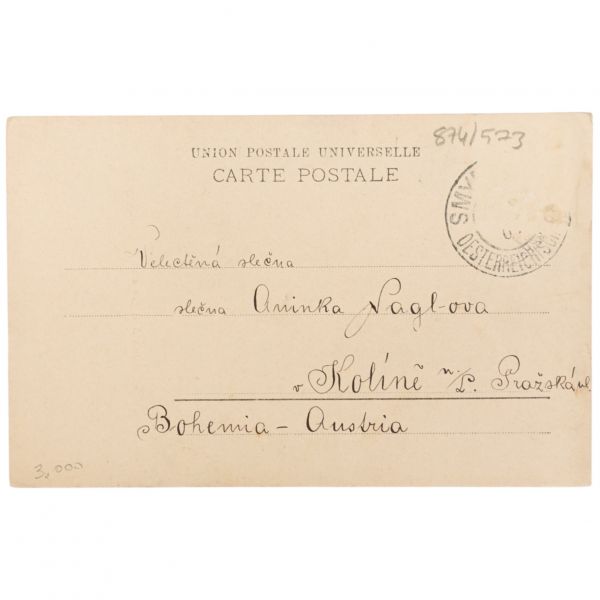 874/573
UNION POSTALE UNIVERSELLE
CARTE POSTALE
Velectěná slečna
slečna Aninka Naglova
v Kolíně n/L. Pražská ul.
Bohemia - Austria
3.000